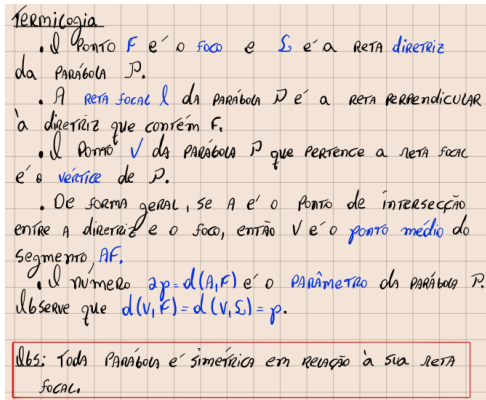 Termilogia
. O Ponto F é o foco e L é a reta diretriz
da parábola P.
. A reta focal l da parábola P é a reta perpendicular
à diretriz que contém F.
. O Ponto V da parábola P que pertence a reta focal
é o vértice de P.
. De forma geral, se A é o Ponto de intersecção
entre A diretriz e o foco, então V é o ponto médio do
segmento, AF.
. O número 2p = d(A,F) é o parâmetro da parábola P.
Observe que d(V,F) = d(V,L) = p.
Obs: Toda Parábola é simétrica em relação à sua reta
focal.